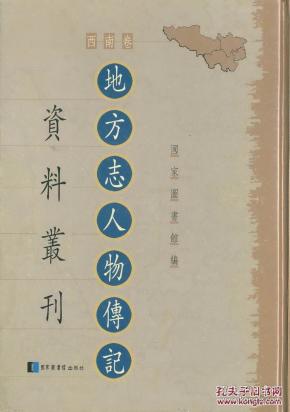 西南卷
地方志人物傳記
資料叢刊
國家圖書館編
國家圖書館出版社
孔夫子旧书网